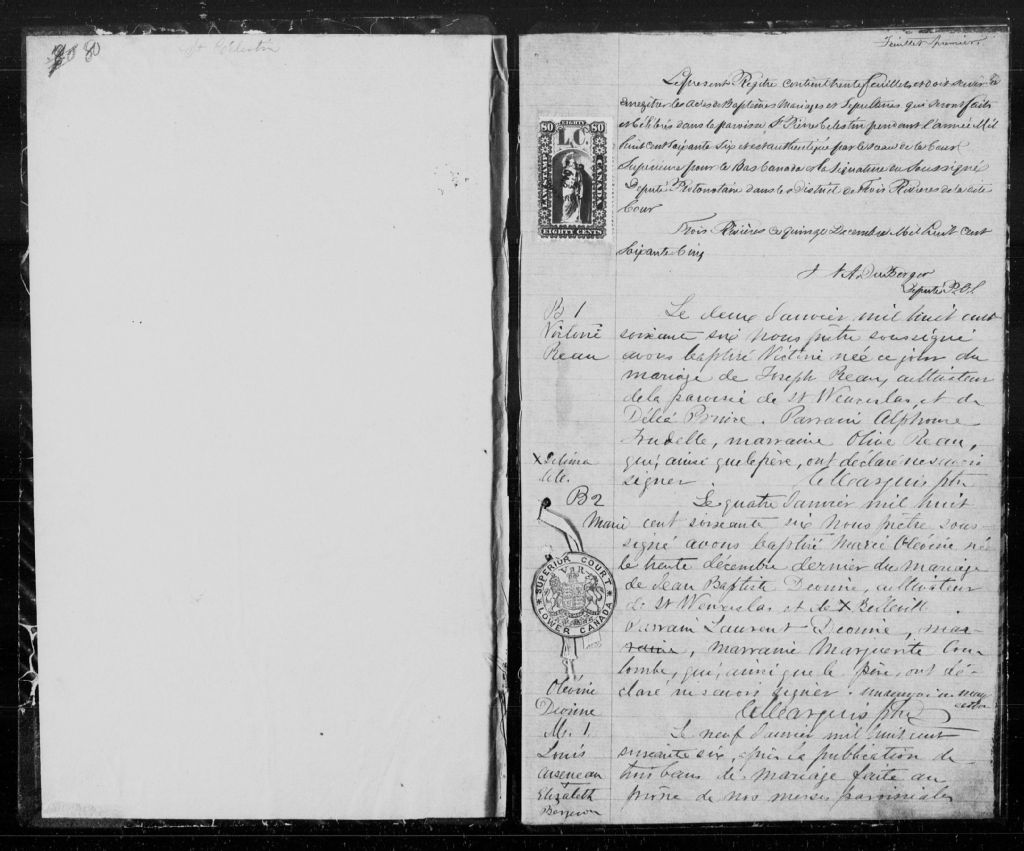 80
St Célestin
Feuillet premier
Le présent Régître contient trente feuillets et doit servir à
enregîtrer les actes de Baptêmes Mariages et Sépultures qui seront faits
et célébrés dans la paroisse St Pierre Celestin pendant l'année Mil
huit cent soixante six et est authentiqué par le sceau de la Cour
Supérieure pour le Bas Canada et la Signature du Soussigné
Député Protonotaire dans le District de Trois Rivières de la dite
Cour
Trois Rivières ce quinze Décembre Mil huit cent
soixante Cinq
DuBerger
Député P.C.S.
80 EIGHTY 80
L.C.
LAW STAMP
CANADA
EIGHTY CENTS
B 1
Victorie
Reau
Le deux Janvier mil huit cent
soixante six nous prêtre soussigné
avons baptisé Victorie née ce jour du
mariage de Joseph Reau, cultivateur
de la paroisse de St Wenceslas, et de
Délia Prince. Parrain Alphonse
Trudelle, marraine Olive Reau,
qui, ainsi que le père, ont déclaré ne savoir
signer. CMarquis ptre
X Zelima
B 2
Marie
Le quatre Janvier mil huit
cent soixante six nous prêtre sous-
signé avons baptisé Marie Olévine née
le trente décembre dernier du mariage
de Jean Baptiste Deonne, cultivateur
de St Wenceslas et de X
Parrain Laurent Deonne, mar-
raine, marraine Marguerite Cou-
lombe, qui, ainsi que le père, ont dé-
claré ne savoir signer.
CMarquis ptre
SUPERIOR COURT
V R
LOWER CANADA
Olévine
Deonne
M. 1.
Louis
Arseneau
Elizabeth
Bergeron
Le neuf Janvier mil huit cent
soixante six, après la publication de
trois bans de mariage faite au
prône de nos messes paroissiales